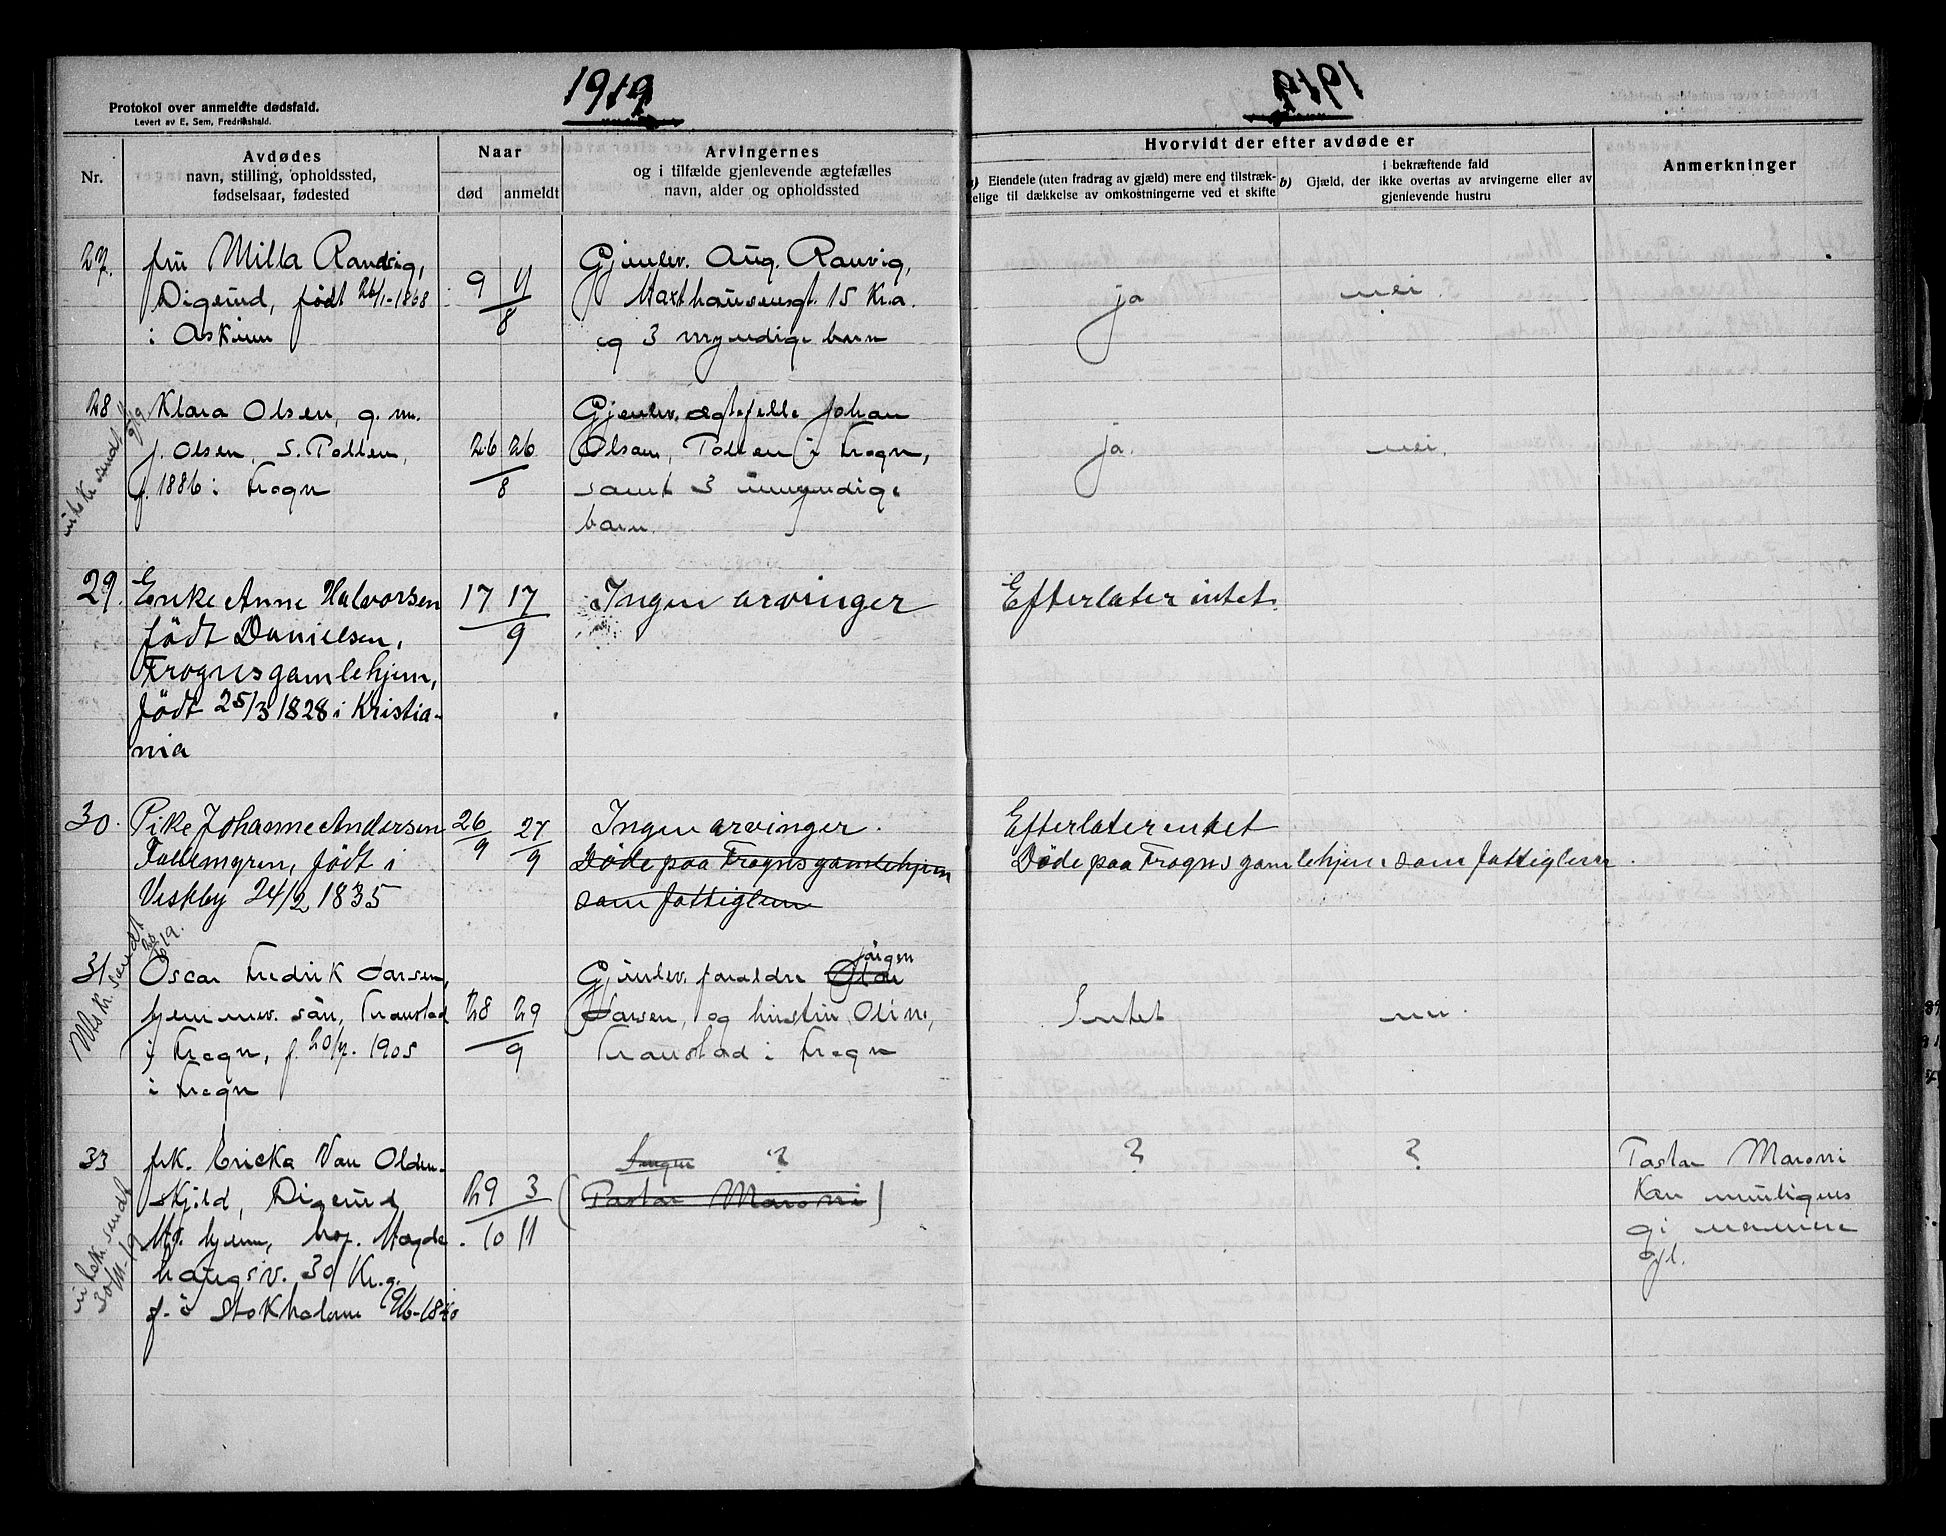 1919
1919
Protokol over anmeldte dødsfald.
Levert av E. Sem, Fredrikshald.
Nr.
Avdødes
navn, stilling, opholdssted,
fødselsaar, fødested
Naar
død
anmeldt
Arvingernes
og i tilfælde gjenlevende ægtefælles
navn, alder og opholdssted
Hvorvidt der efter avdøde er
a) Eiendele (uten fradrag av gjæld) mere end tilstræk-
kelige til dækkelse av omkostningerne ved et skifte
b) Gjæld, der
i bekræftende fald
ikke overtas av arvingerne eller av
gjenlevende hustru
Anmerkninger
27.
fru Milla Randvig,
Digerud, født 26/1-1868
i Askim
9 11
8
Gjenlev. Aug. Ranvig,
Maxthausensgt. 15 Kr.a.
og 3 myndige barn
ja
nei.
28
Klara Olsen, g. m.
J. Olsen, S. Tolten,
f. 1886 i Frogn
26 26
8
Gjenlev. ægtefelle Johan
Olsen, Tolten i Frogn,
samt 3 umyndige
barn.
ja.
nei.
29.
Enke Anne Halvorsen
født Danielsen,
Frogns gamlehjem,
født 25/3 1828 i Kristia-
nia
17 17
9
Ingen arvinger
Efterlater intet.
30.
Pike Johanne Andersen
født i
24/2 1835
26
9
27
9
Ingen arvinger.
Døde paa Frogns gamlehjem
som fattiglem
Efterlater intet
Døde paa Frogns gamlehjem som fattiglem.
31
Oscar Fredrik Larsen,
hjemmev. sön, Transtad
i Frogn, f. 20/7. 1905
i Frogn
28 29
9
Jörgen
Gjenlev. forældre Olav
Larsen, og hustru Oline,
Transtad i Frogn
Intet
nei.
33
frk. Ericka Van Olden-
skjöld, Digerud
hjem, bop.
30 Kr.a.
f. i Stockholm
29 3
10 11
Ingen ?
(Pastor Maroni)
?
?
Pastor Maroni
kan muligens
gi nærmere
opl.